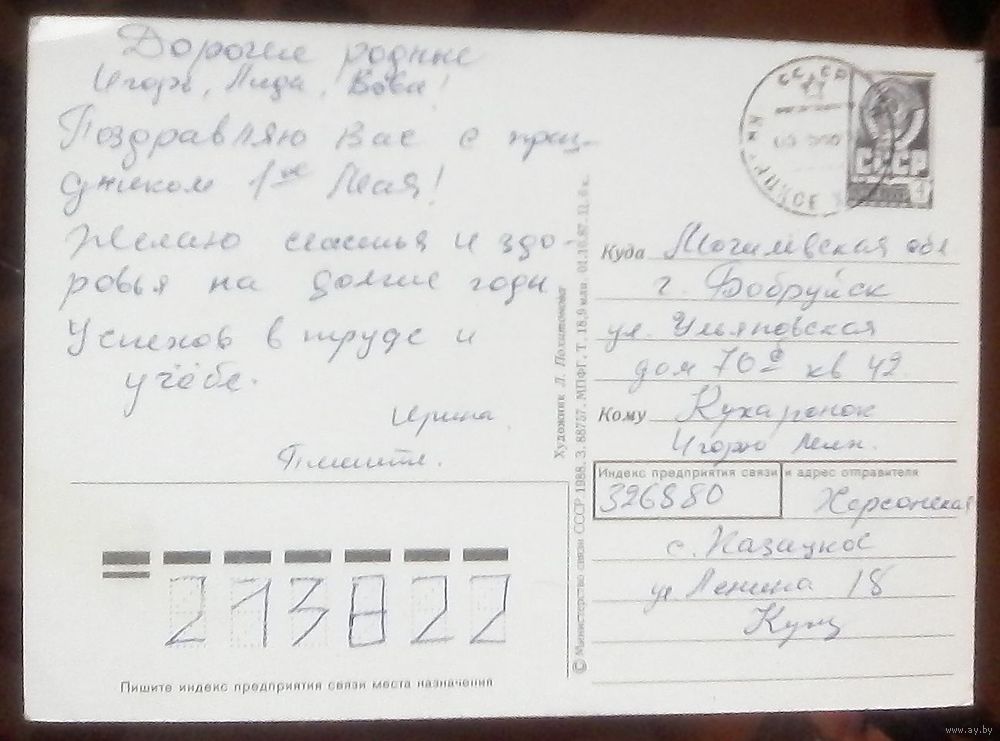 Дорогие родные
Игорь, Лида, Вова!
Поздравляю Вас с праз-
дником 1ое Мая!
Желаю счастья и здо-
ровья на долгие годы
Успехов в труде и
учёбе.
Ирина.
Пишите.
СССР
СССР
4
Куда Могилёвская обл
г. Бобруйск
ул. Ульяновская
дом 70 кв 42
Кому Кухаренок
Игорю
Индекс предприятия связи и адрес отправителя
326880 Херсонская
с. Казацкое
ул Ленина 18
Кущ
213822
Пишите индекс предприятия связи места назначения
Художник Л. Похитонова
© Министерство связи СССР 1988. З. 88757. МПФГ. Т. 18,9 млн. 01.10.87. Ц. 6 к.
www.ay.by